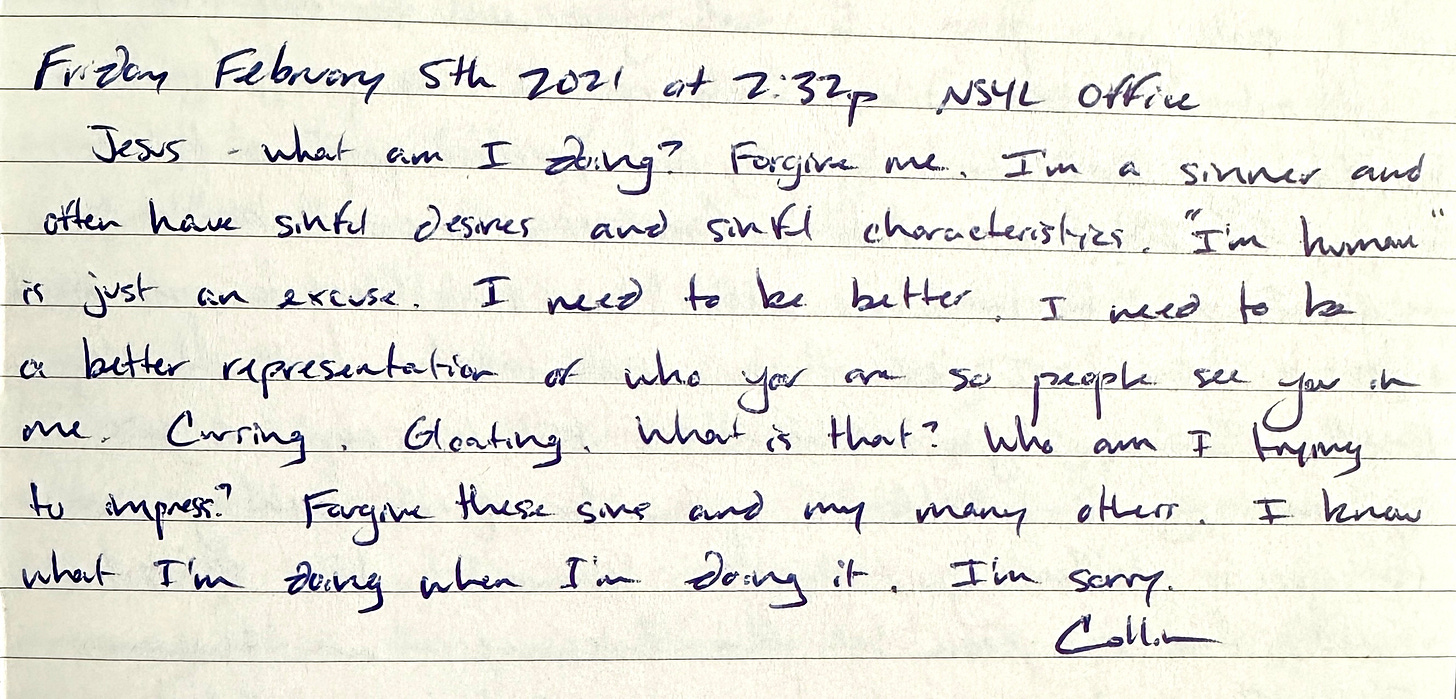 Friday February 5th 2021 at 2:32p NSYL Office
Jesus - what am I doing? Forgive me. I'm a sinner and
often have sinful desires and sinful characteristics. "I'm human"
is just an excuse. I need to be better. I need to be
a better representation of who you are so people see you in
me. Cursing. Gloating. What is that? Who am I trying
to impress? Forgive these sins and my many others. I know
what I'm doing when I'm doing it. I'm sorry.
Collin